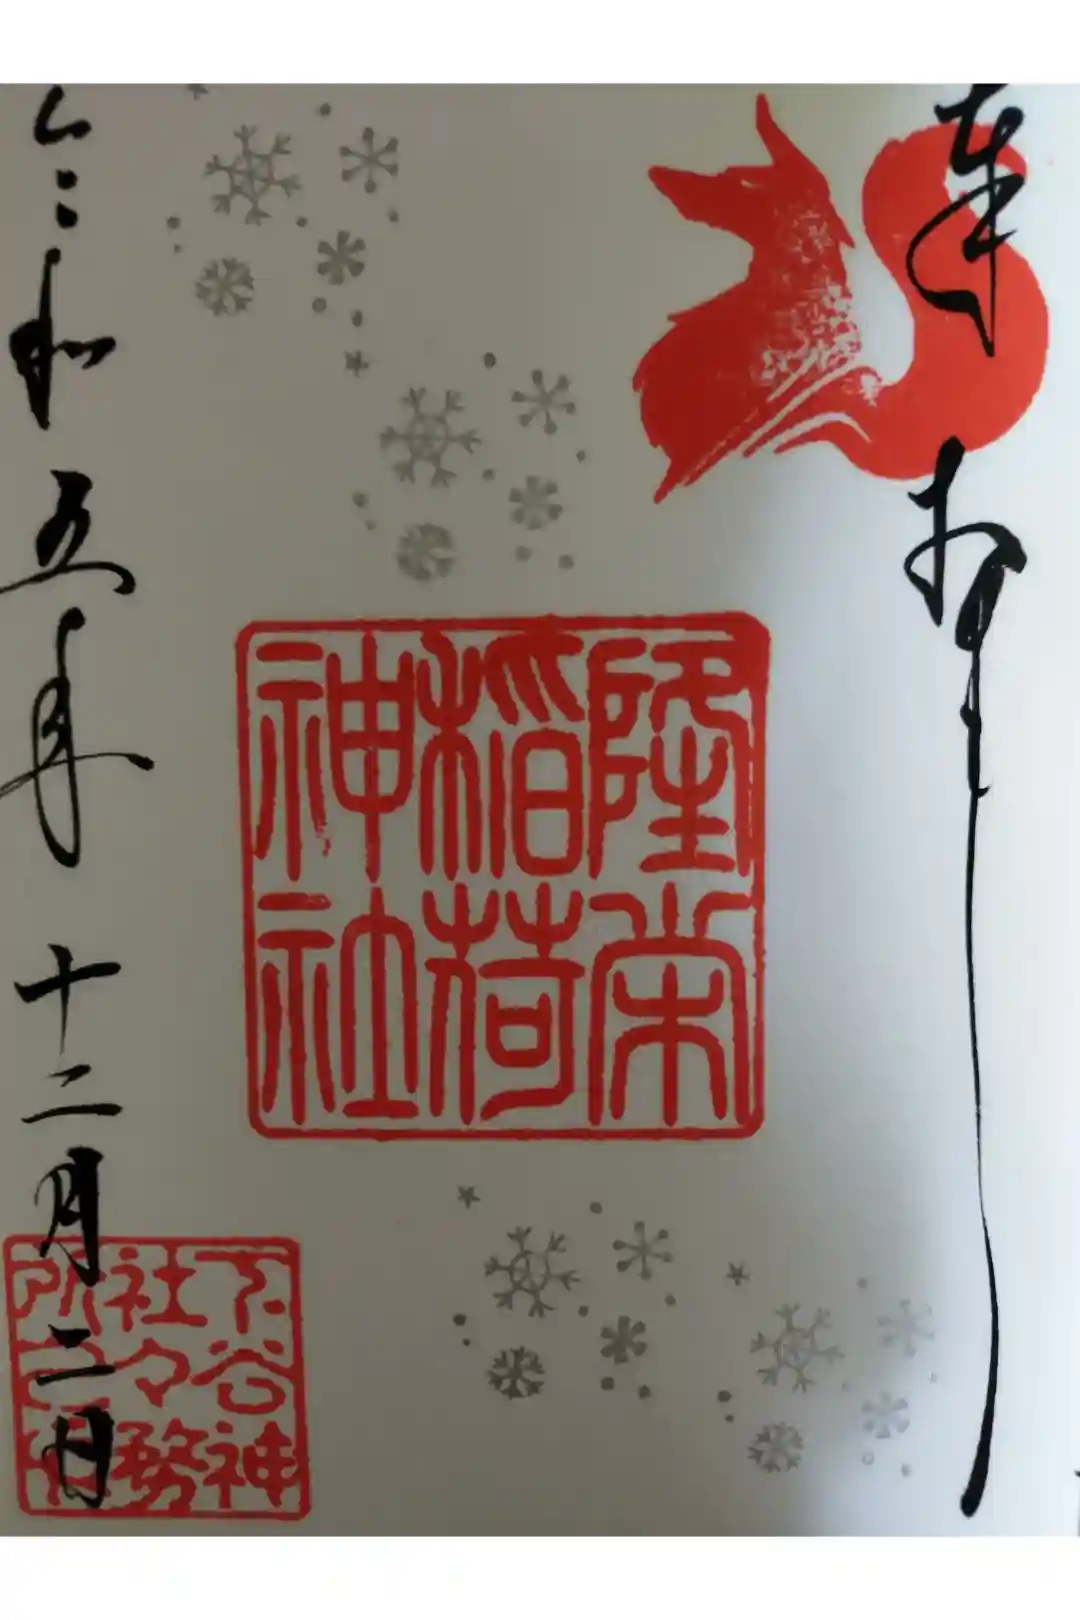 奉拝
隆栄
稲荷
神社
令和五年十二月二日
下谷神
社々務
所之印